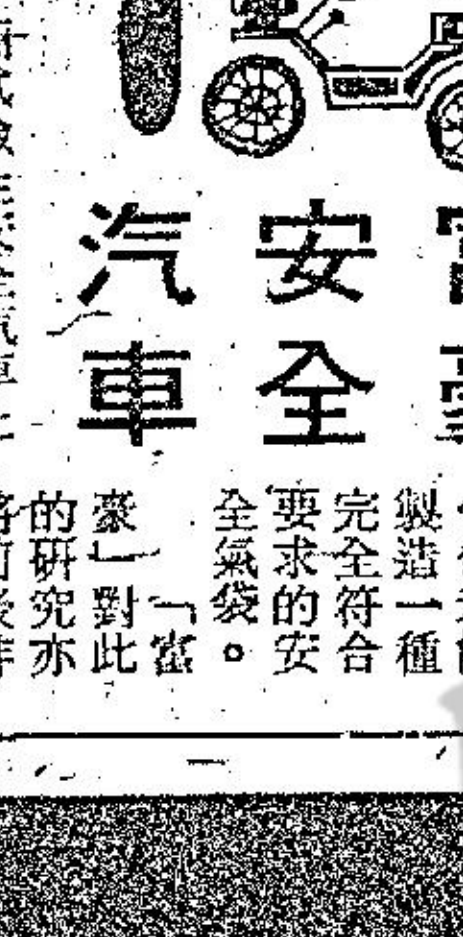 安全
汽車
製造一種
完全符合
要求的安
全氣袋。
「富
豪」對此
的研究亦